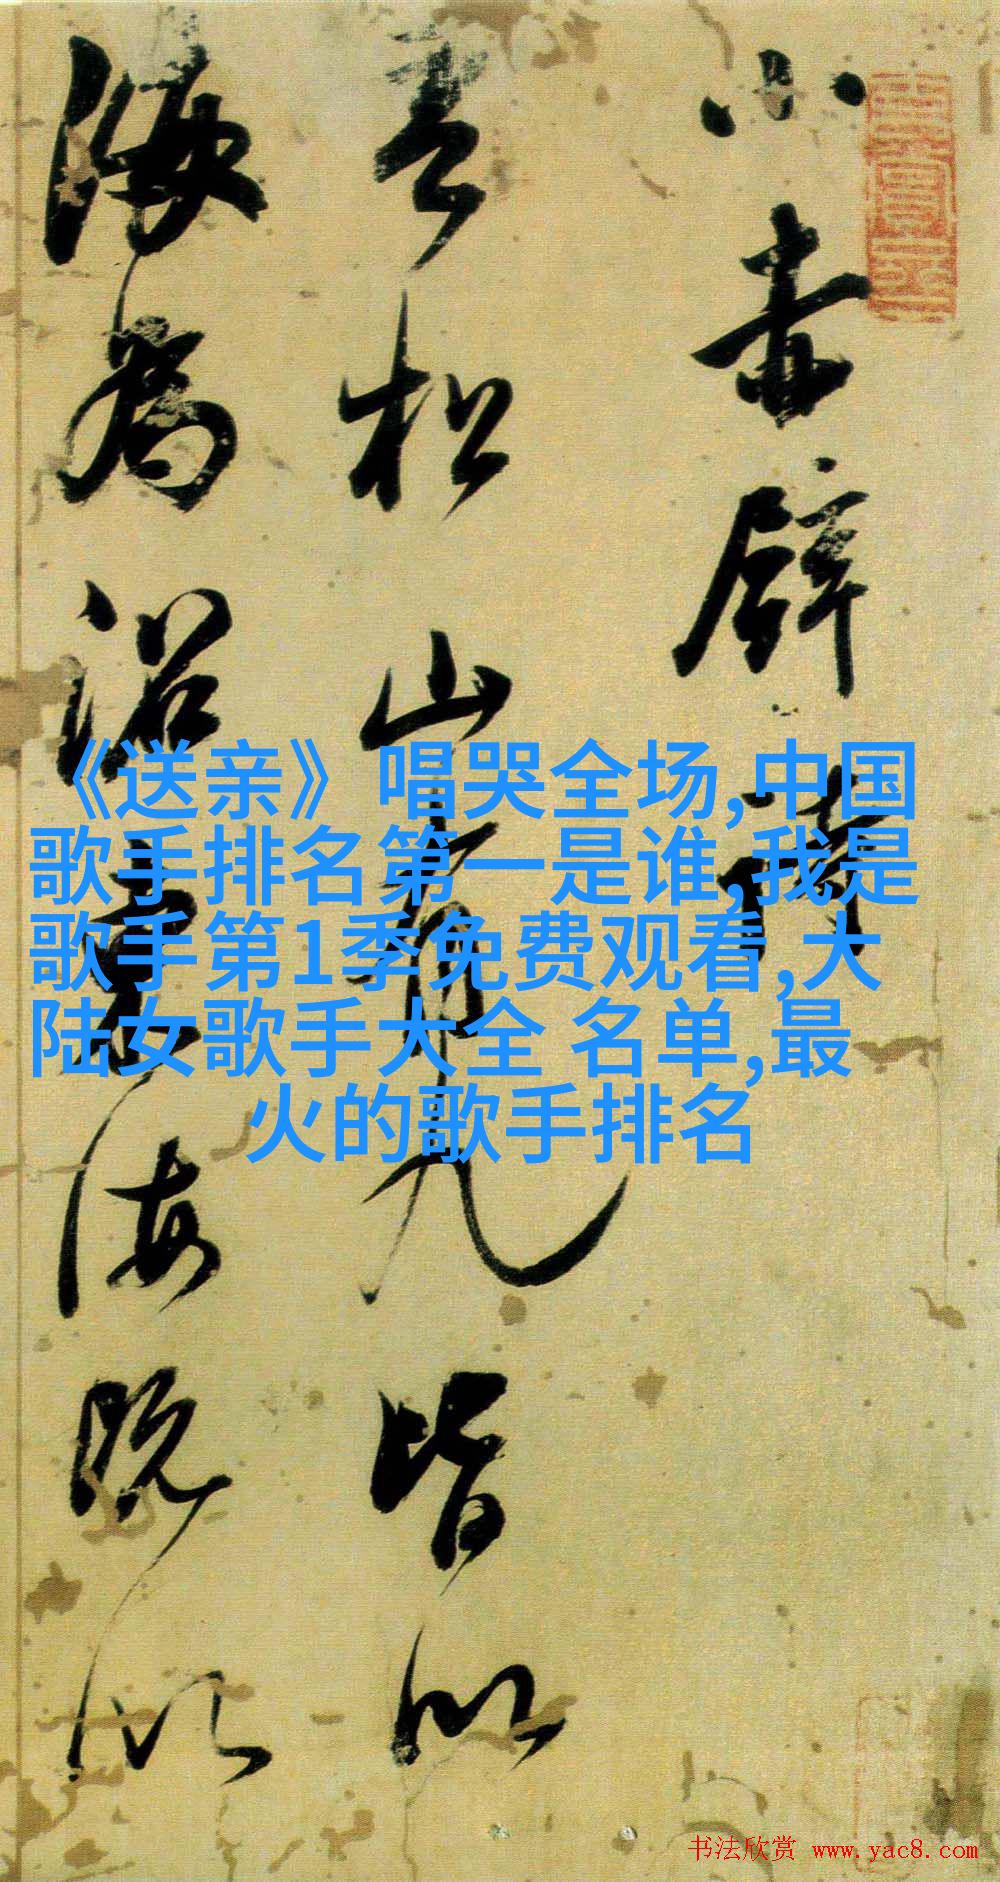 小赤壁詩
松山九皆似
海為海既似
《送亲》唱哭全场,中国
歌手排名第一是谁,我是
歌手第1季免费观看,大
陆女歌手大全 名单,最
火的歌手排名
书法欣赏 www.yac8.com